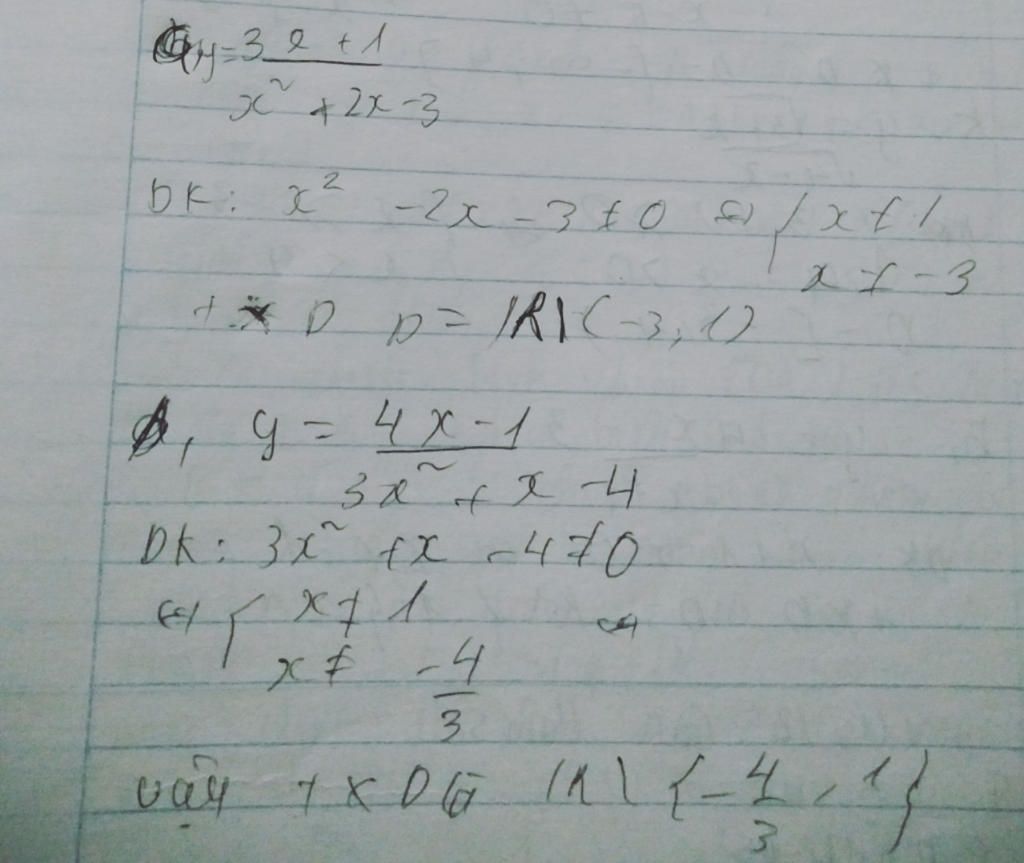 y = 3x + 1
x² + 2x - 3
DK: x² - 2x - 3 ≠ 0 ⇔ { x ≠ 1
x ≠ -3
TXD D = |R \ (-3, 1)
b, y = 4x - 1
3x² + x - 4
DK: 3x² + x - 4 ≠ 0
⇔ { x ≠ 1 ⇔
x ≠ -4
3
vậy TXD là |R \ { -4/3, 1 }